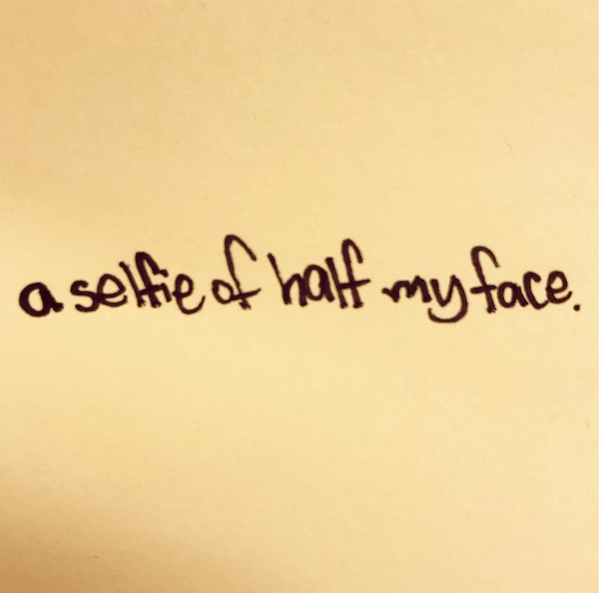 a selfie of half my face.